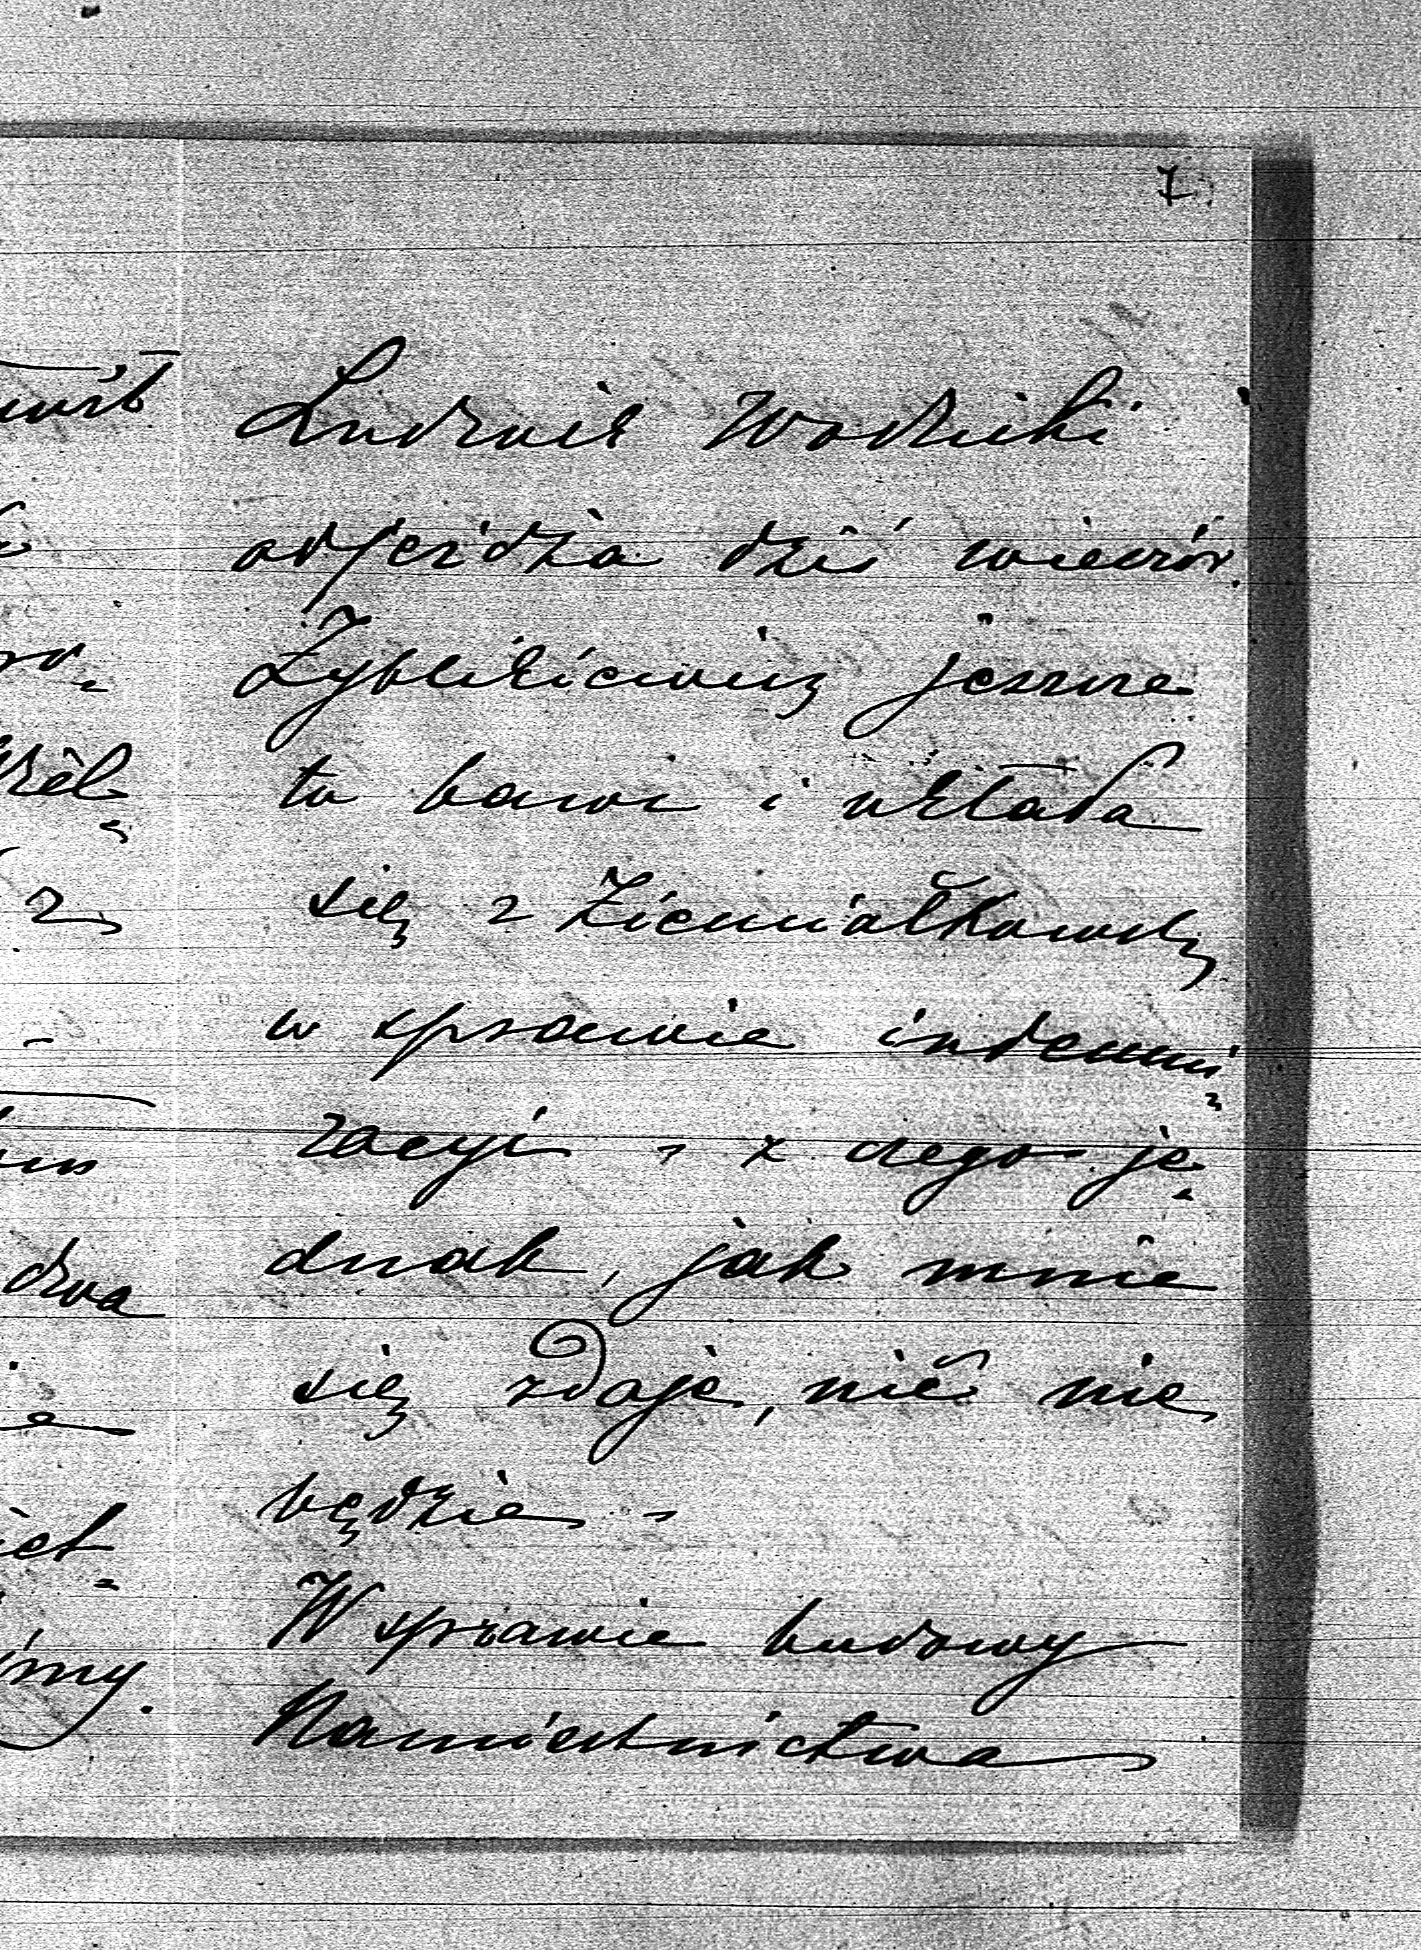 7.
Ludwik Wodzicki
odjeżdża dziś wieczór.
Zyblikiewicz jeszcze
tu bawi i układa
się z Ziemiałkowsk.
w sprawie indemni
zacyi - z czego je-
dnak, jak mnie
się zdaje, nic nie
będzie -
W sprawie budowy
Namiestnictwa